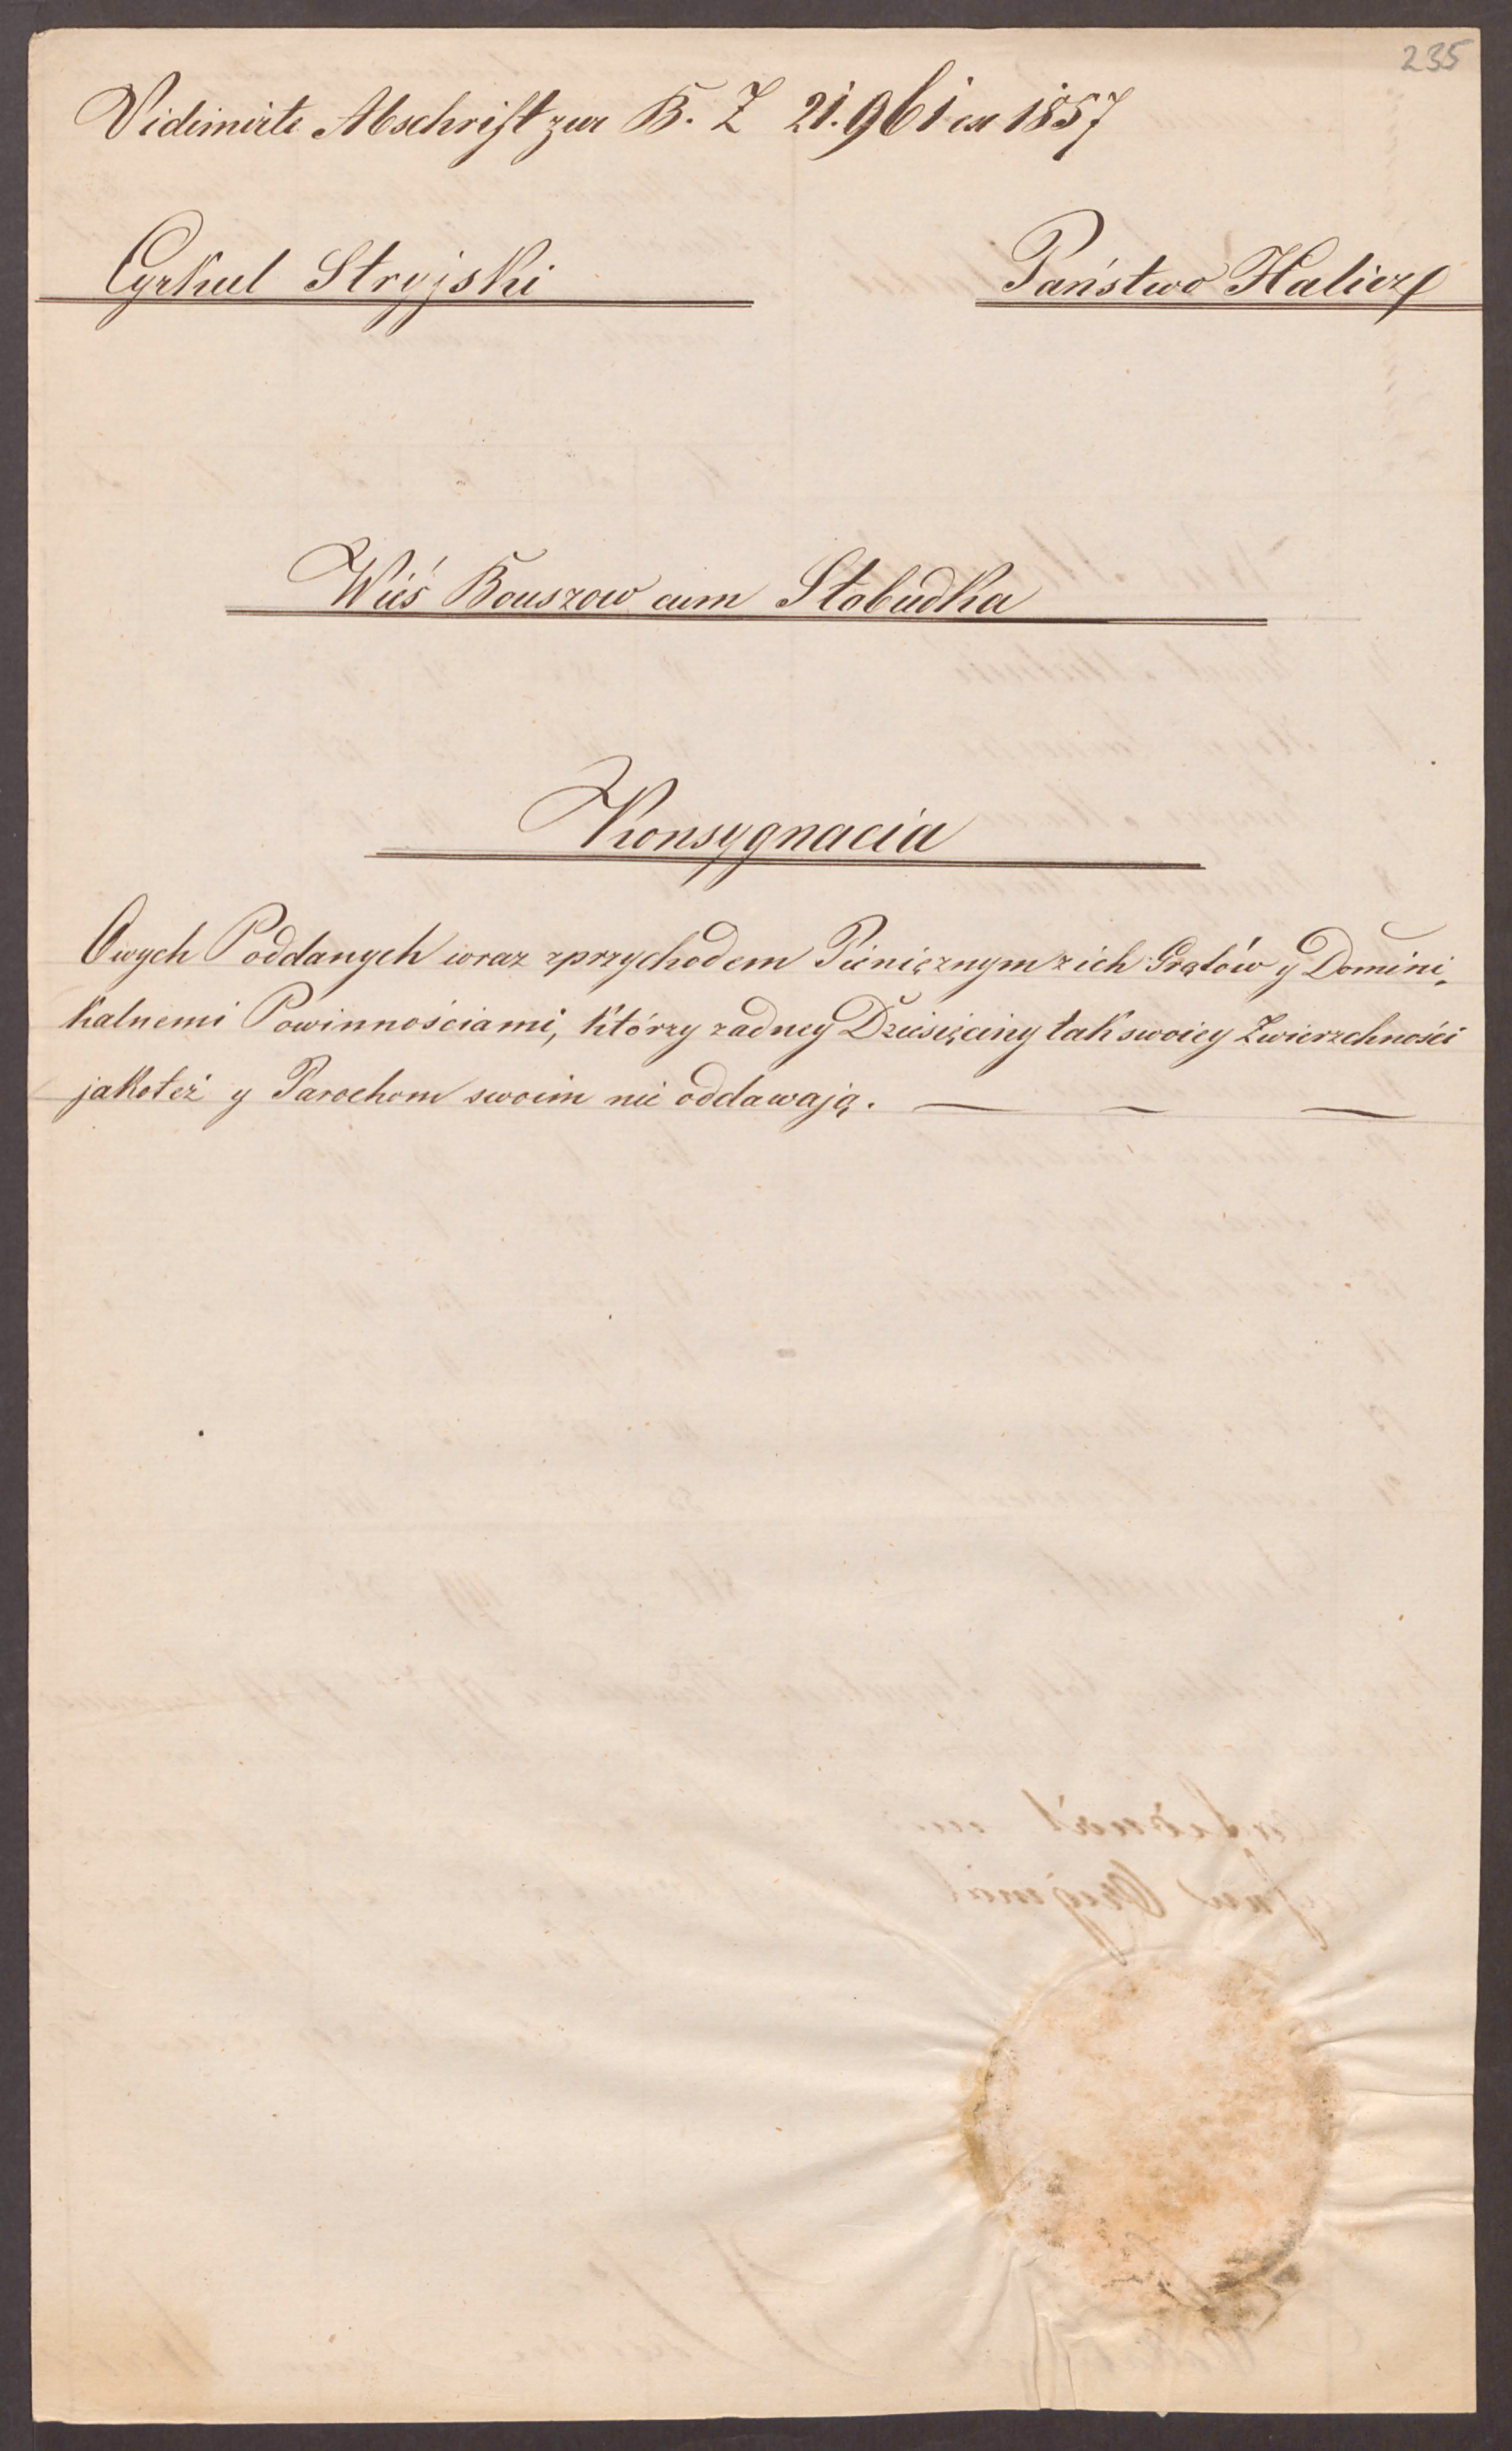 235
Vidimirte Abschrift zur B. Z 21.961 ex 1857
Cyrkul Stryjski
Państwo Halicz
Wieś Bouszow cum Słobudka
Konsygnacia
Owych Poddanych wraz z przychodem Pieniężnym z ich Grątów y Domini„
kalnemi Powinnościami, którzy zadney Dziesięciny tak swoiey Zwierzchności
jakoteż y Parochom swoim nie oddawają. — — —